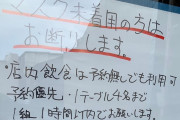 マスク未着用の方は
お断りします。
・店内飲食は予約無しでも利用可
予約優先・1テーブル4名まで
1組1時間以内でお願いします。